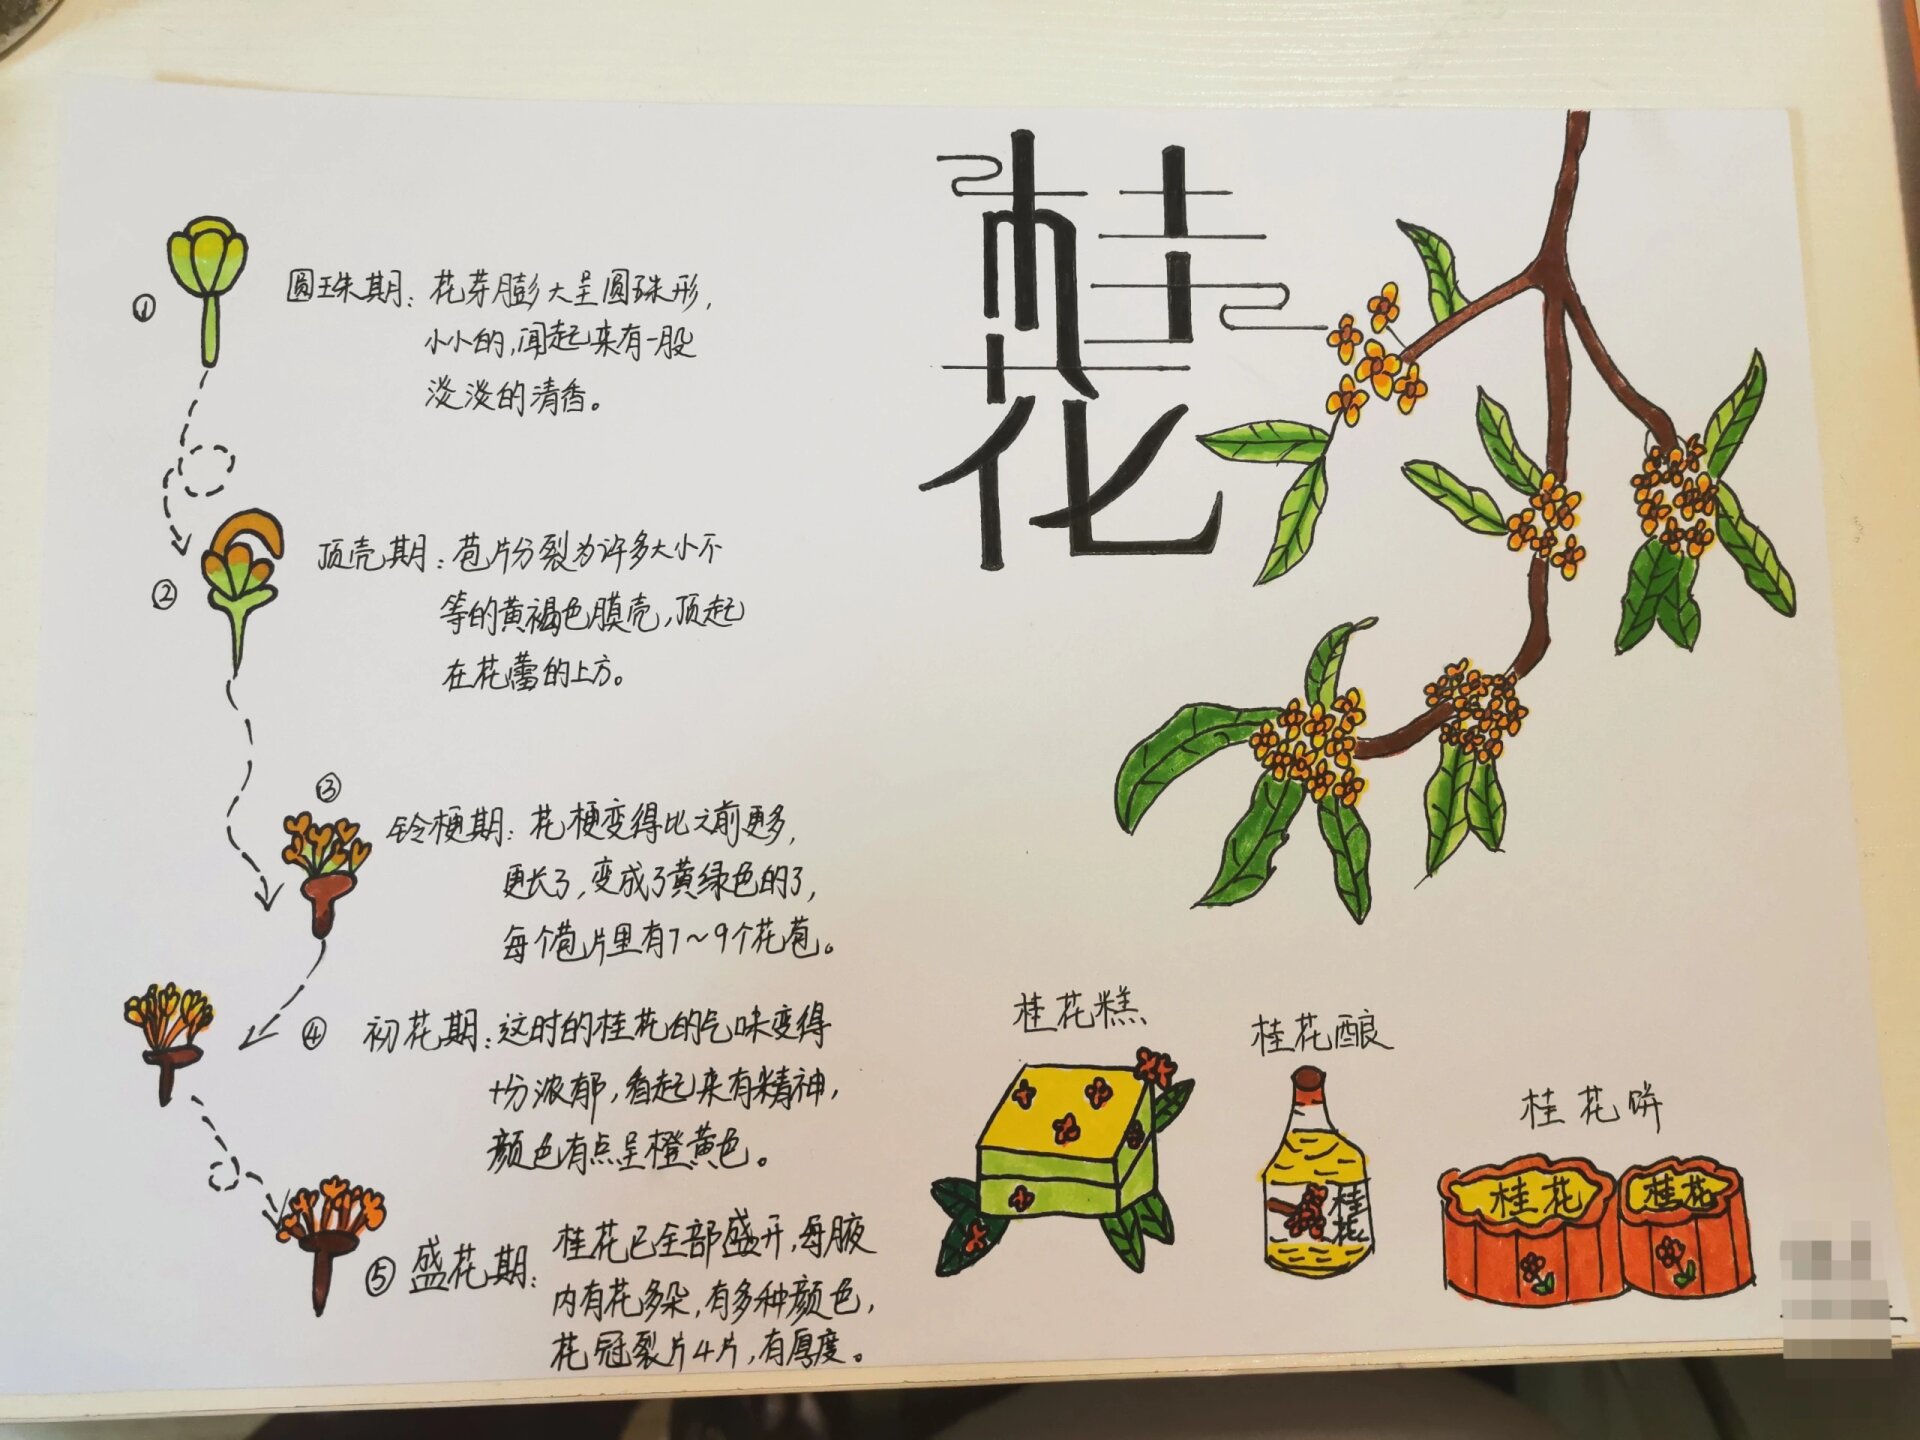 桂
花
①
圆珠期：花芽膨大呈圆珠形，
小小的，闻起来有一股
淡淡的清香。
②
顶壳期：苞片分裂为许多大小不
等的黄褐色膜壳，顶起
在花蕾的上方。
③
铃梗期：花梗变得比之前更多，
更长了，变成了黄绿色的了，
每个苞片里有7～9个花苞。
④ 初花期：这时的桂花的气味变得
十分浓郁，看起来有精神，
颜色有点呈橙黄色。
⑤ 盛花期：桂花已全部盛开，每腋
内有花多朵，有多种颜色，
花冠裂片4片，有厚度。
桂花糕
桂花酿
桂花
桂花饼
桂花
桂花